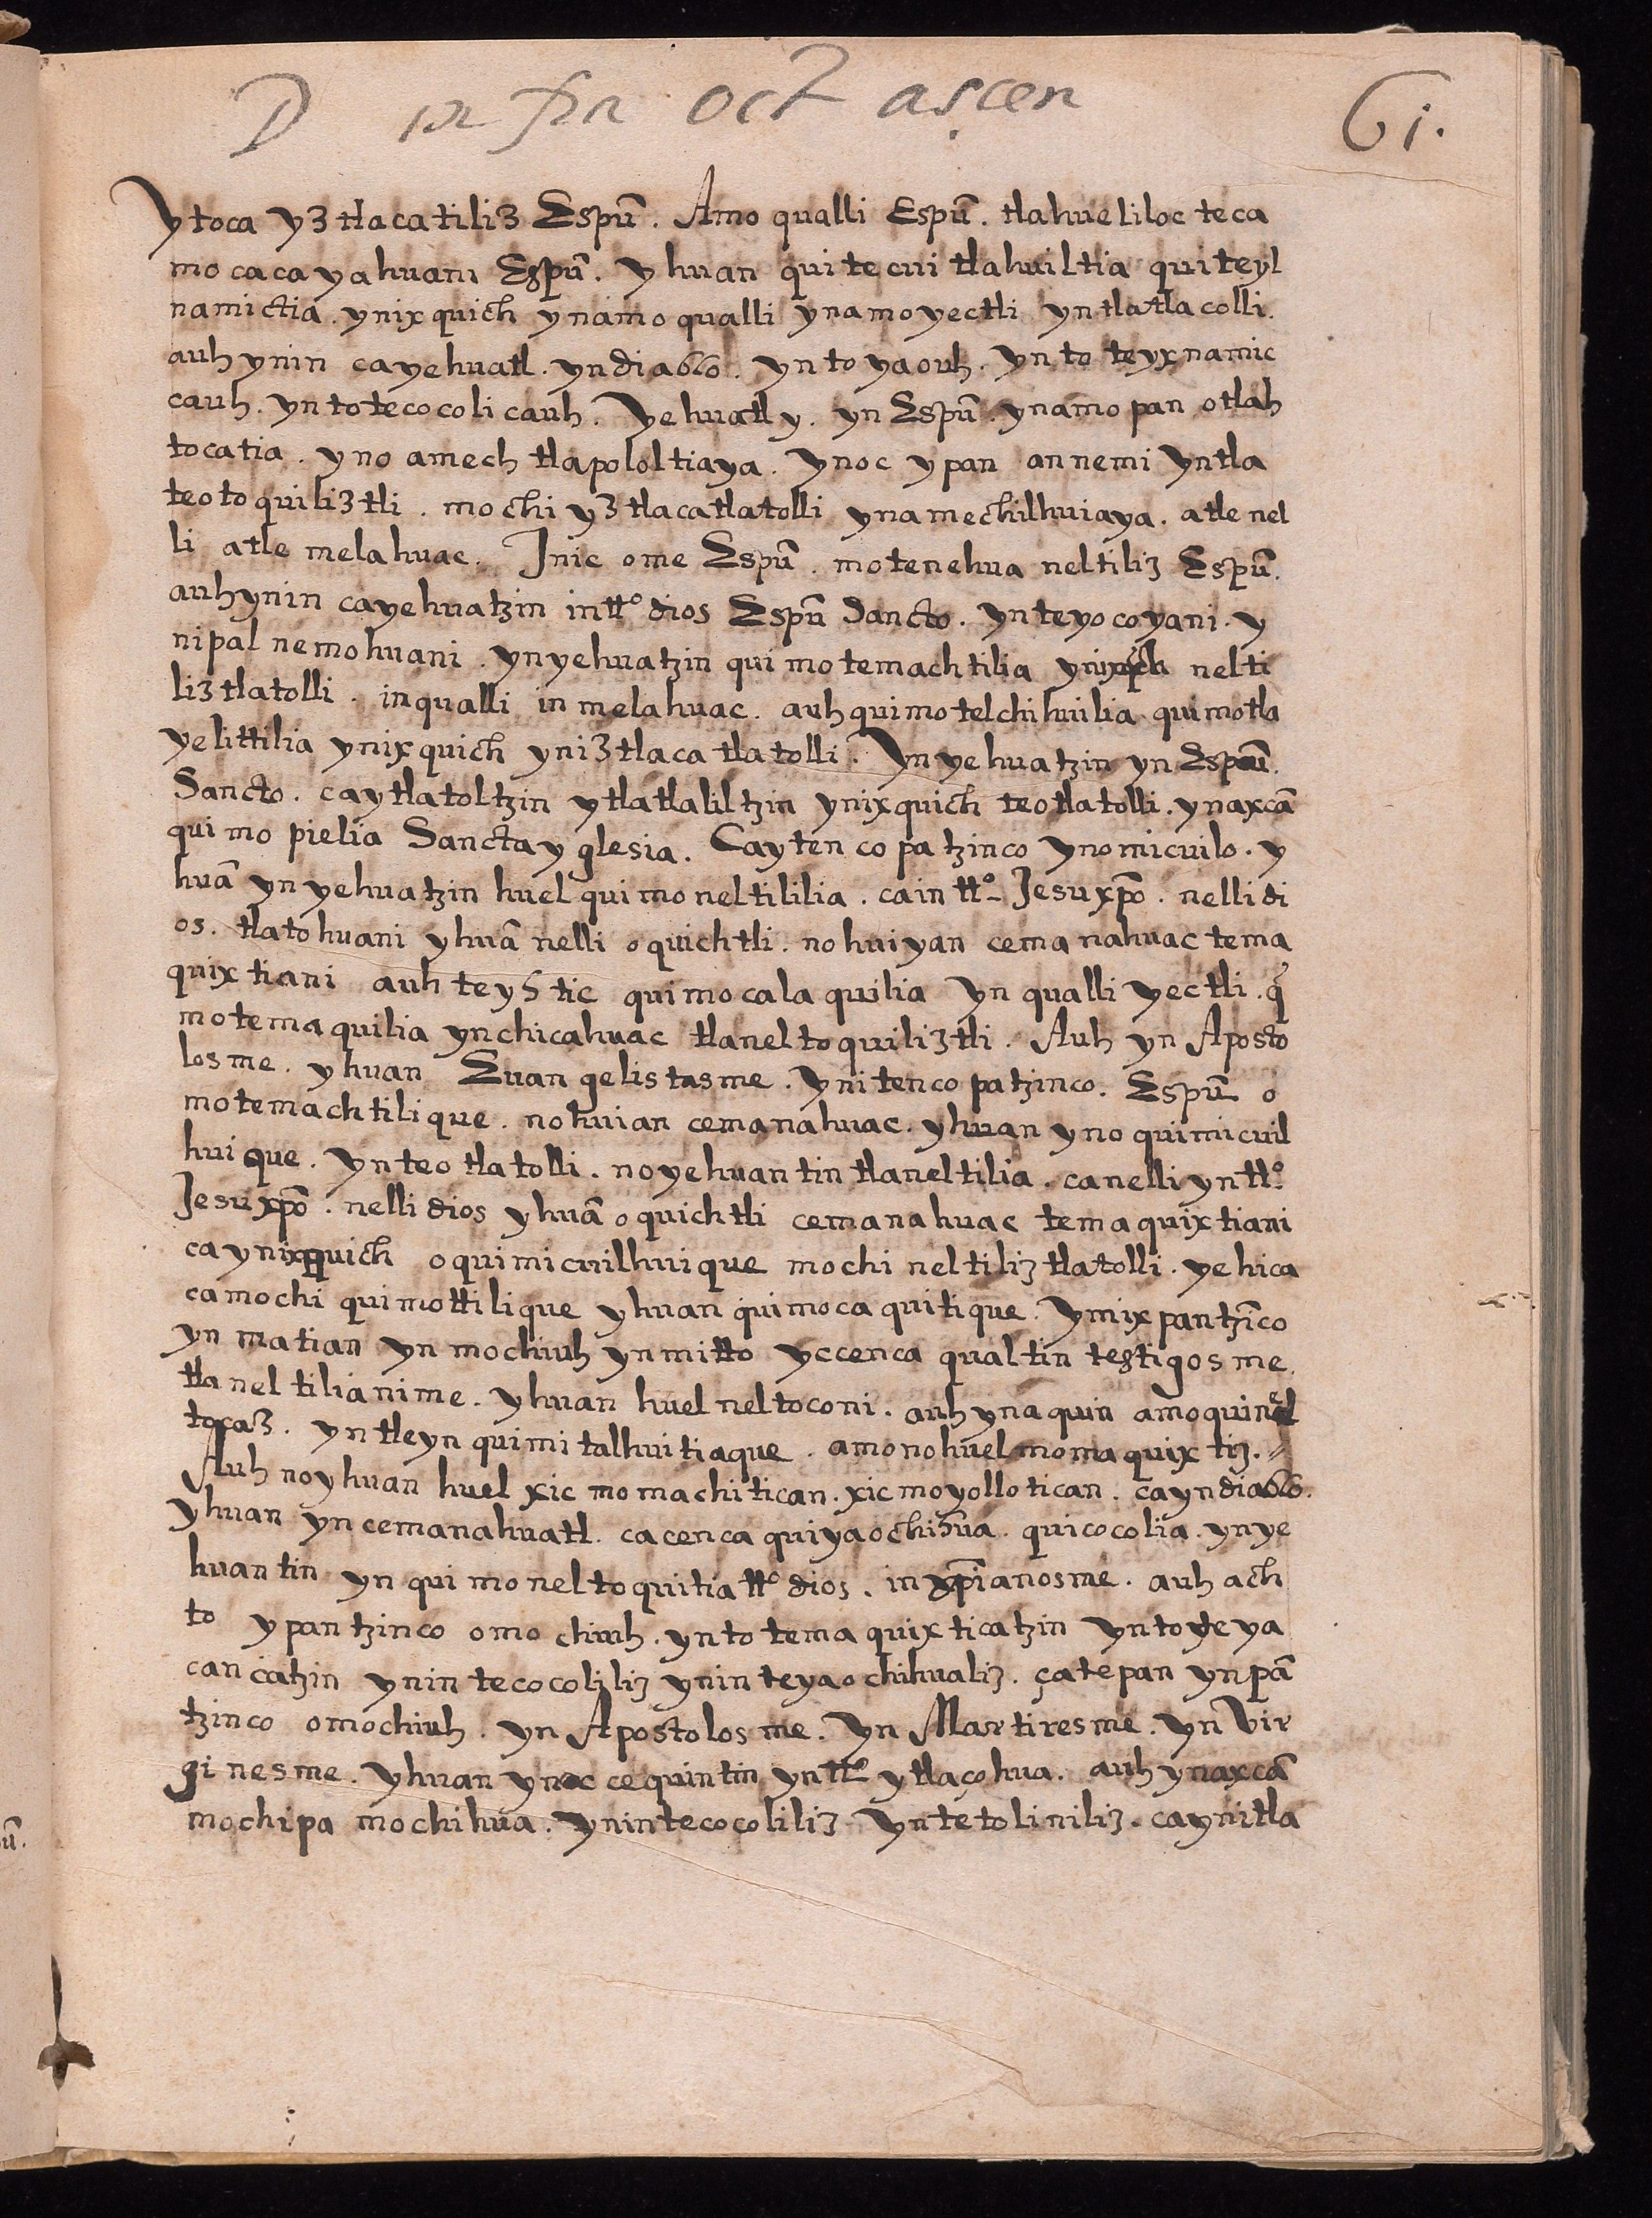 D infra oct ascen 61.
ytoca yztlacatiliz Espũ. Amo qualli Espũ. tlahueliloc teca
mocacayahuani Espũ. yhuan quitecuitlahuiltia quiteyl
namictia. ynixquich ynamo qualli ynamoyectli yntlatlacolli.
auh ynin cayehuatl. yndiablo. yn toyaouh. yn to teyxnamic
cauh. yn totecocolicauh. Yehuatl y. yn Espũ. ynamo pan otlah
tocatia. yno amech tlapololtiaya. ynoc ypan annemi yntla
teotoquiliztli. mochi yztlacatlatolli ynamechilhuiaya. atle nel
li atle melahuac. Inic ome Espũ. motenehua neltiliz Espũ.
auhynin cayehuatzin intto dios Espũ Sancto. ynteyocoyani. y
nipalnemohuani. ynyehuatzin quimotemachtilia ynixqch nelti
liztlatolli. inqualli in melahuac. auh quimotelchihuilia quimotla
yelittilia ynixquich yniztlacatlatolli. Ynyehuatzin yn Espũ.
Sancto. caytlatoltzin ytlatlaliltzin ynixquich teotlatolli. ynaxcã
quimopielia Sancta yglesia. Caytencopatzinco ynomicuilo. y
huã ynyehuatzin huel quimoneltililia. cain tto Jesuxpõ. nelli di
os. tlatohuani yhuã nelli oquichtli. nohuiyan cemanahuac tema
quixtiani auh teystic quimocalaquilia yn qualli yectli. q̃
motemaquilia ynchicahuac tlaneltoquiliztli. Auh yn Aposto
losme. yhuan Euangelistasme. ynitencopatzinco. Espũ o
motemachtilique. nohuian cemanahuac. yhuan yno quimicuil
huique. ynteotlatolli. noyehuantin tlaneltilia. canelli yntto
Jesuxpõ. nelli dios yhuã oquichtli cemanahuac temaquixtiani
caynixquich oquimicuilhuique mochi neltiliztlatolli. yehica
camochi quimottilique yhuan quimocaquitique. ymixpantzĩco
yn matian yn mochiuh ynmitto yccenca qualtin testigosme.
tlaneltilianime. yhuan huel neltoconi. auhynaquin amo quinel
tocaz. yntleyn quimitalhuitiaque. amonohuel momaquixtiz.
Auh noyhuan huel xicmomachitican. xicmoyollotican. cayndiablo.
yhuan yncemanahuatl. cacenca quiyaochihua. quicocolia. ynye
huantin yn quimoneltoquitia tto dios. inxpianosme. auh ach
to ypantzinco omochiuh. yntotemaquixticatzin yntoteya
cancatzin ynintecocoliliz ynin teyaochihualiz. çatepan ynpã
tzinco omochiuh. yn Apostolosme. yn Martiresme. yn Vir
ginesme. yhuan ynoc cequintin yntto ytlaçohua. auh ynaxcã
mochipa mochihua. ynintecocoliliz yntetoliniliz. caynitla